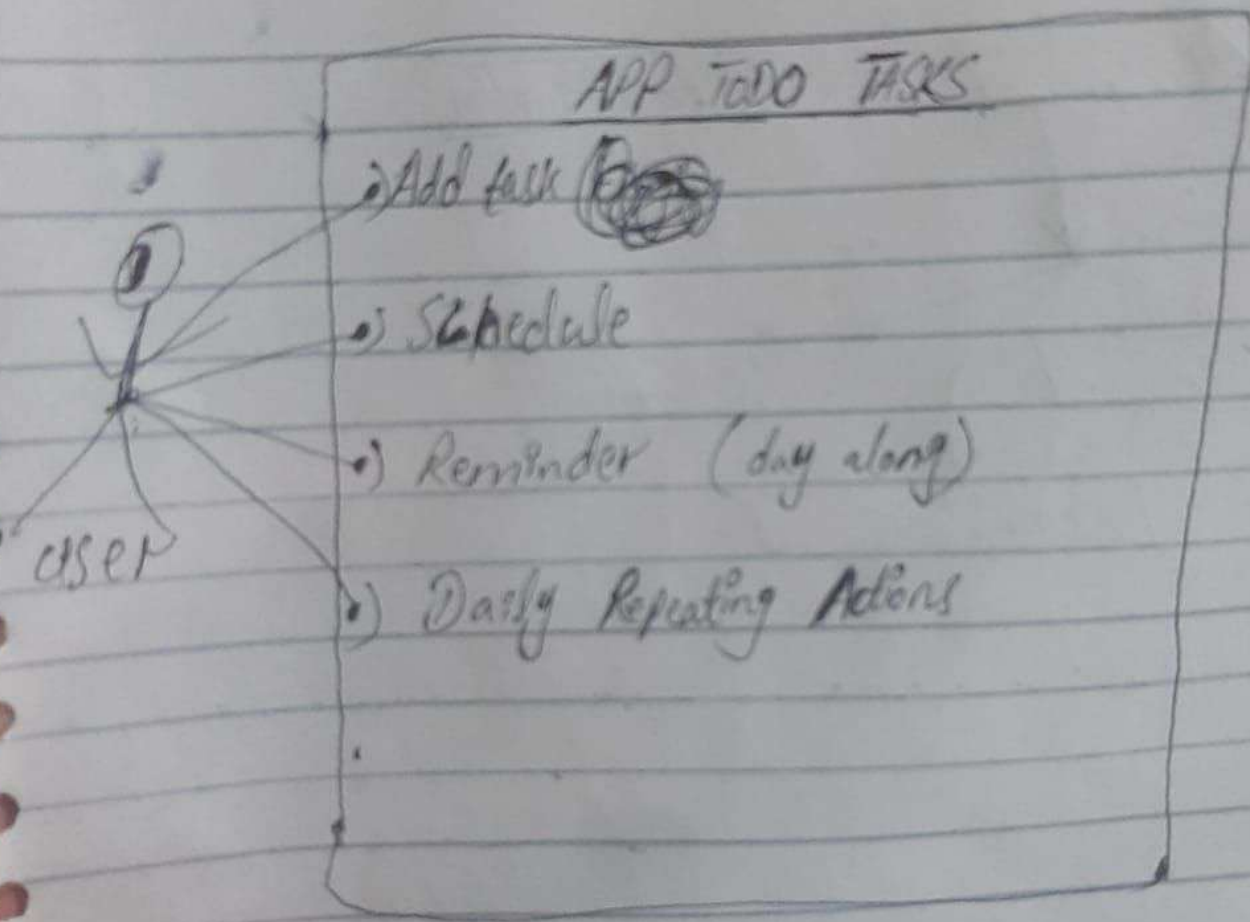 APP TODO TASKS
•) Add task
•) Schedule
•) Reminder (day along)
•) Daily Repeating Actions
user